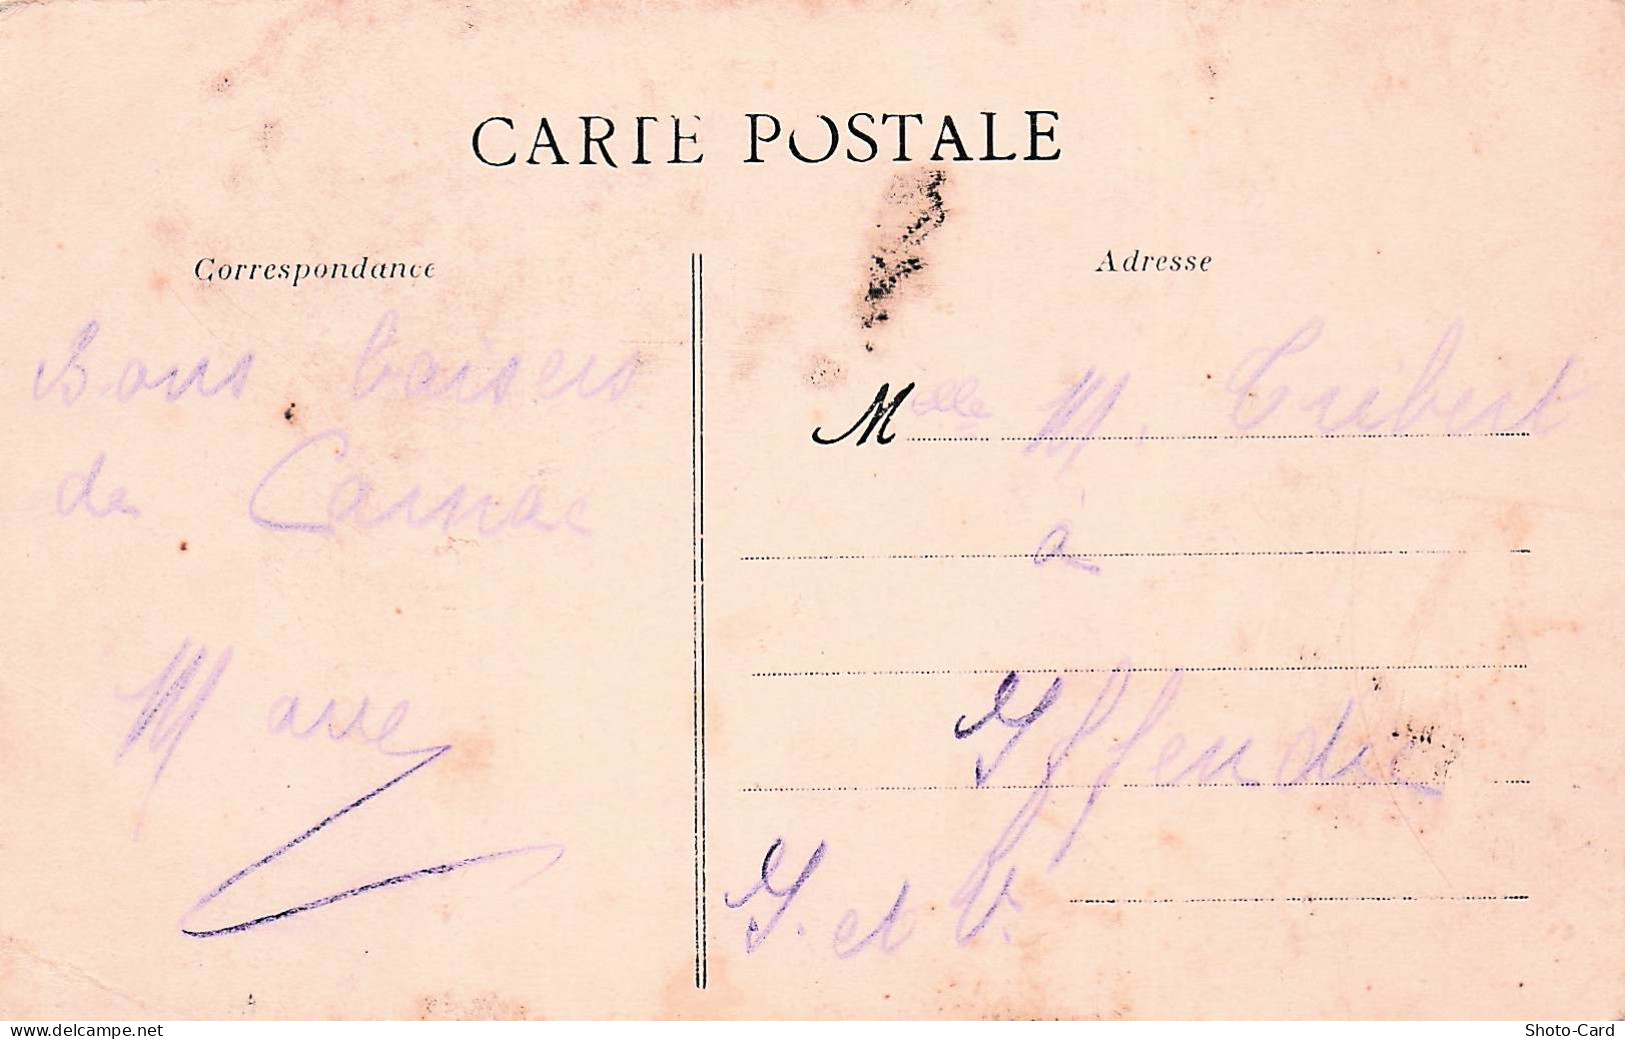 CARTE POSTALE
Correspondance
Bons baisers
de Carnac
Adresse
Melle M. Tribert
à
Iffendic
I. et V.
my-ebru.delcampe.net
Shoto-Card